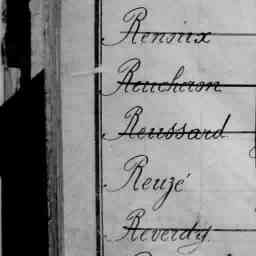 Renoux
Reucheron
Reussard
Reuzé
Reverdy